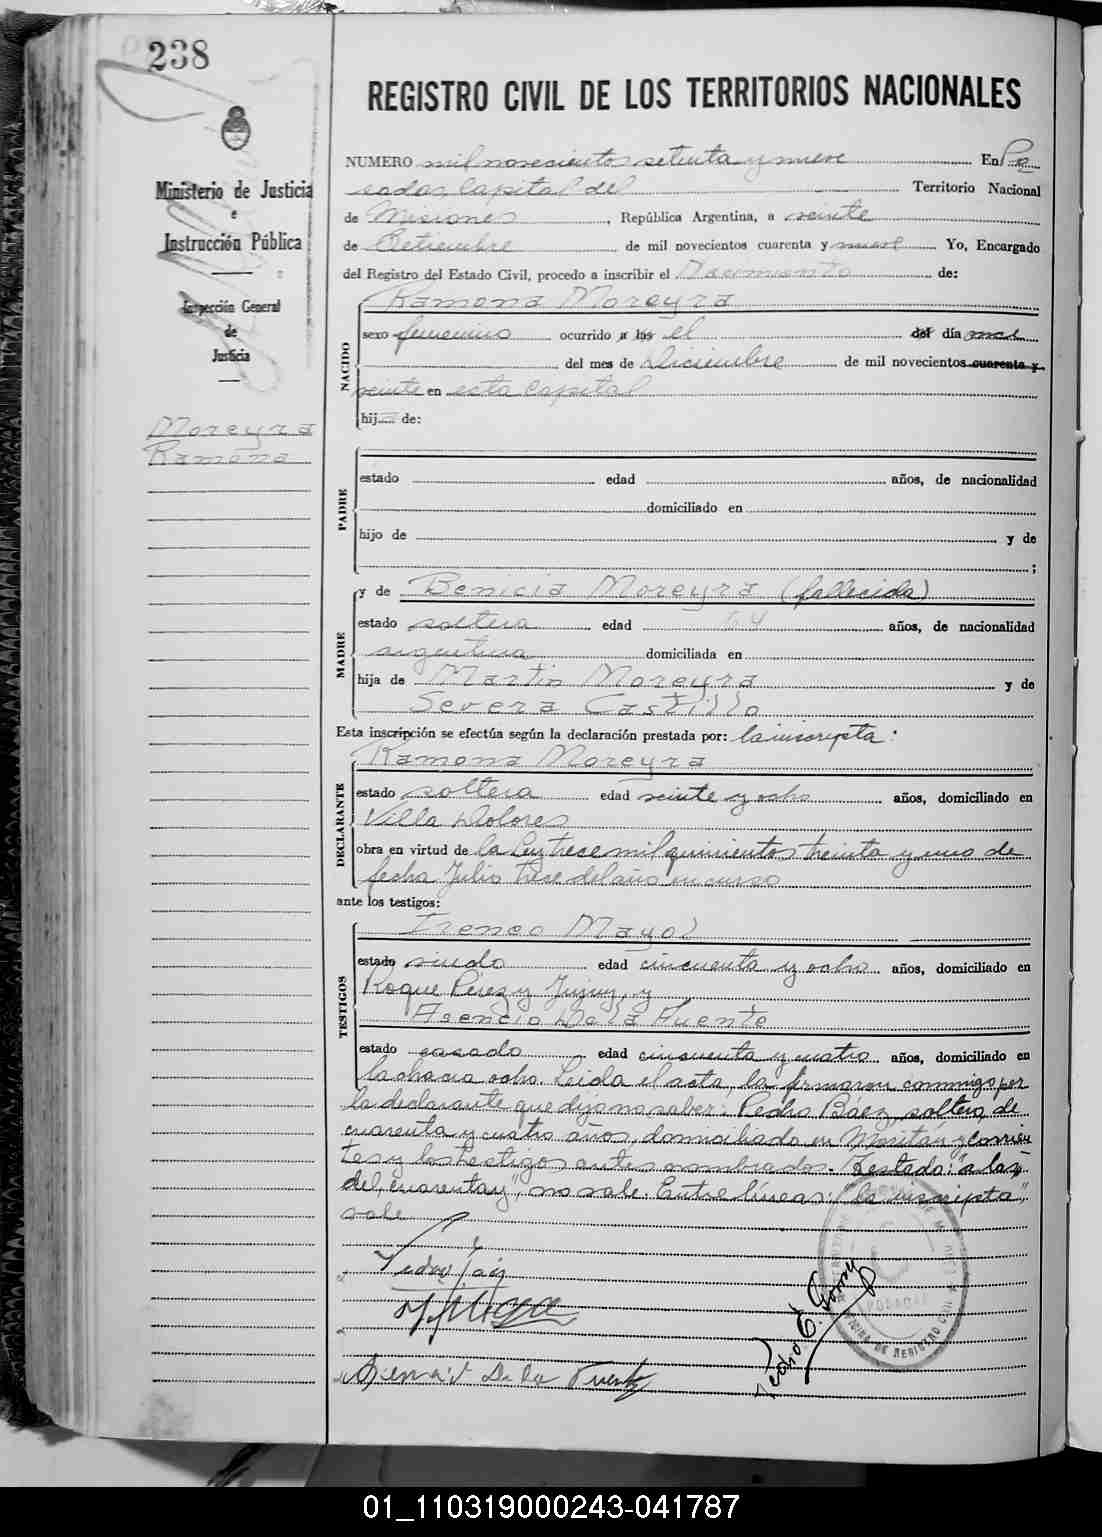 238
REGISTRO CIVIL DE LOS TERRITORIOS NACIONALES
Ministerio de Justicia
e
Instrucción Pública
Inspección General
de
Justicia
Moreyra
Ramona
NUMERO mil novecientos setenta y nueve En Po
sadas, Capital del Territorio Nacional
de Misiones, República Argentina, a veinte
de Setiembre de mil novecientos cuarenta y nueve Yo, Encargado
del Registro del Estado Civil, procedo a inscribir el Nacimiento de:
NACIDO
Ramona Moreyra
sexo femenino ocurrido a las el del día once
del mes de Diciembre de mil novecientos cuarenta y
veinte en esta Capital
hij de:
PADRE
estado edad años, de nacionalidad
domiciliado en
hijo de y de
;
MADRE
y de Benicia Moreyra (fallecida)
estado soltera edad 64 años, de nacionalidad
argentina domiciliada en
hija de Martin Moreyra y de
Severa Castillo
Esta inscripción se efectúa según la declaración prestada por: la inscripta:
DECLARANTE
Ramona Moreyra
estado soltera edad veinte y ocho años, domiciliado en
Villa Dolores
obra en virtud de la Ley trece mil quinientos treinta y uno de
fecha Julio trece del año en curso
ante los testigos:
TESTIGOS
Ireneo Mayol
estado viudo edad cincuenta y ocho años, domiciliado en
Roque Pérez y Jujuy, y
Asencio De la Fuente
estado casado edad cincuenta y cuatro años, domiciliado en
la chacra ocho. Leida el acta, la firmaron conmigo por
la declarante que dijo no saber: Pedro Báez, soltero, de
cuarenta y cuatro años, domiciliado en y Corrien
tes y los testigos antes nombrados. Testado: "a las,
del, cuarenta y", no vale. Entre líneas: "la inscripta",
vale
Pedro Baez
De la Fuente
Pedro E.
POSADAS
OFICINA DE REGISTRO CIVIL
01_110319000243-041787